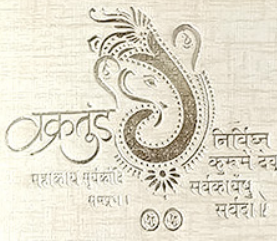 वक्रतुंड
महाकाय सूर्यकोटि
समप्रभ।
निर्विघ्न
कुरूमे देव
सर्वकार्येषु
सर्वदा॥